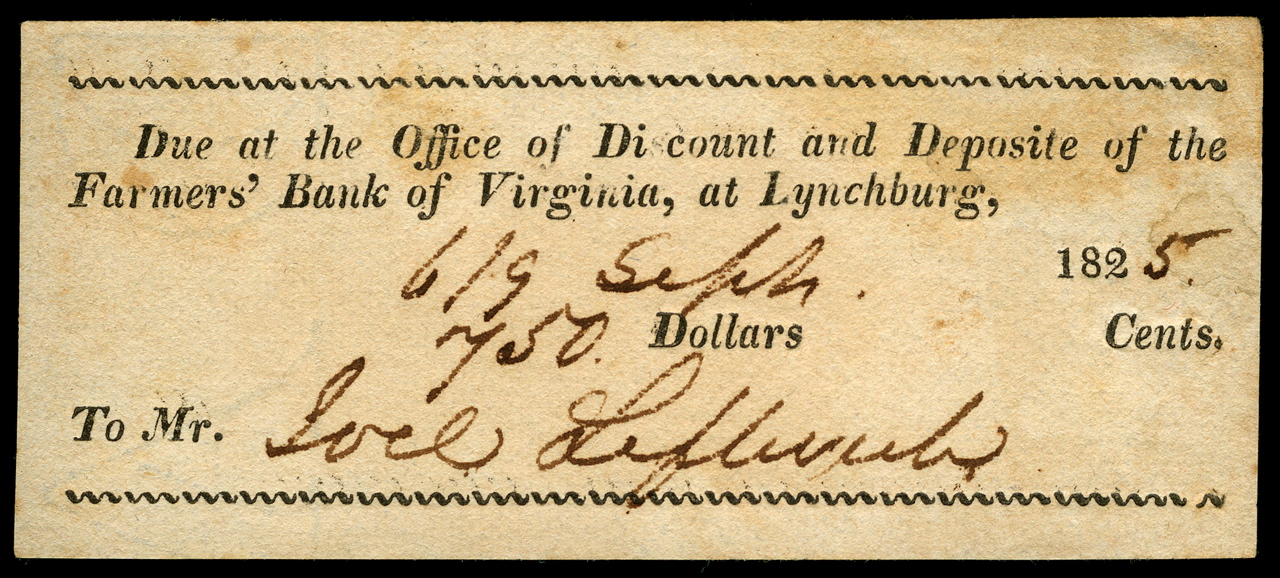 Due at the Office of Discount and Deposite of the
Farmers' Bank of Virginia, at Lynchburg,
6/9 Sept. 1825.
750. Dollars Cents.
To Mr. Joel Leftwich